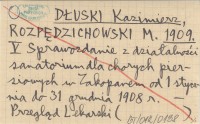 DŁUSKI Kazimierz,
ROZPĘDZICHOWSKI M. 1909.
V Sprawozdanie z działalności
sanatorium dla chorych pier-
siowych w Zakopanem od 1 stycz-
nia do 31 grudnia 1908 r.
Przegląd Lekarski (